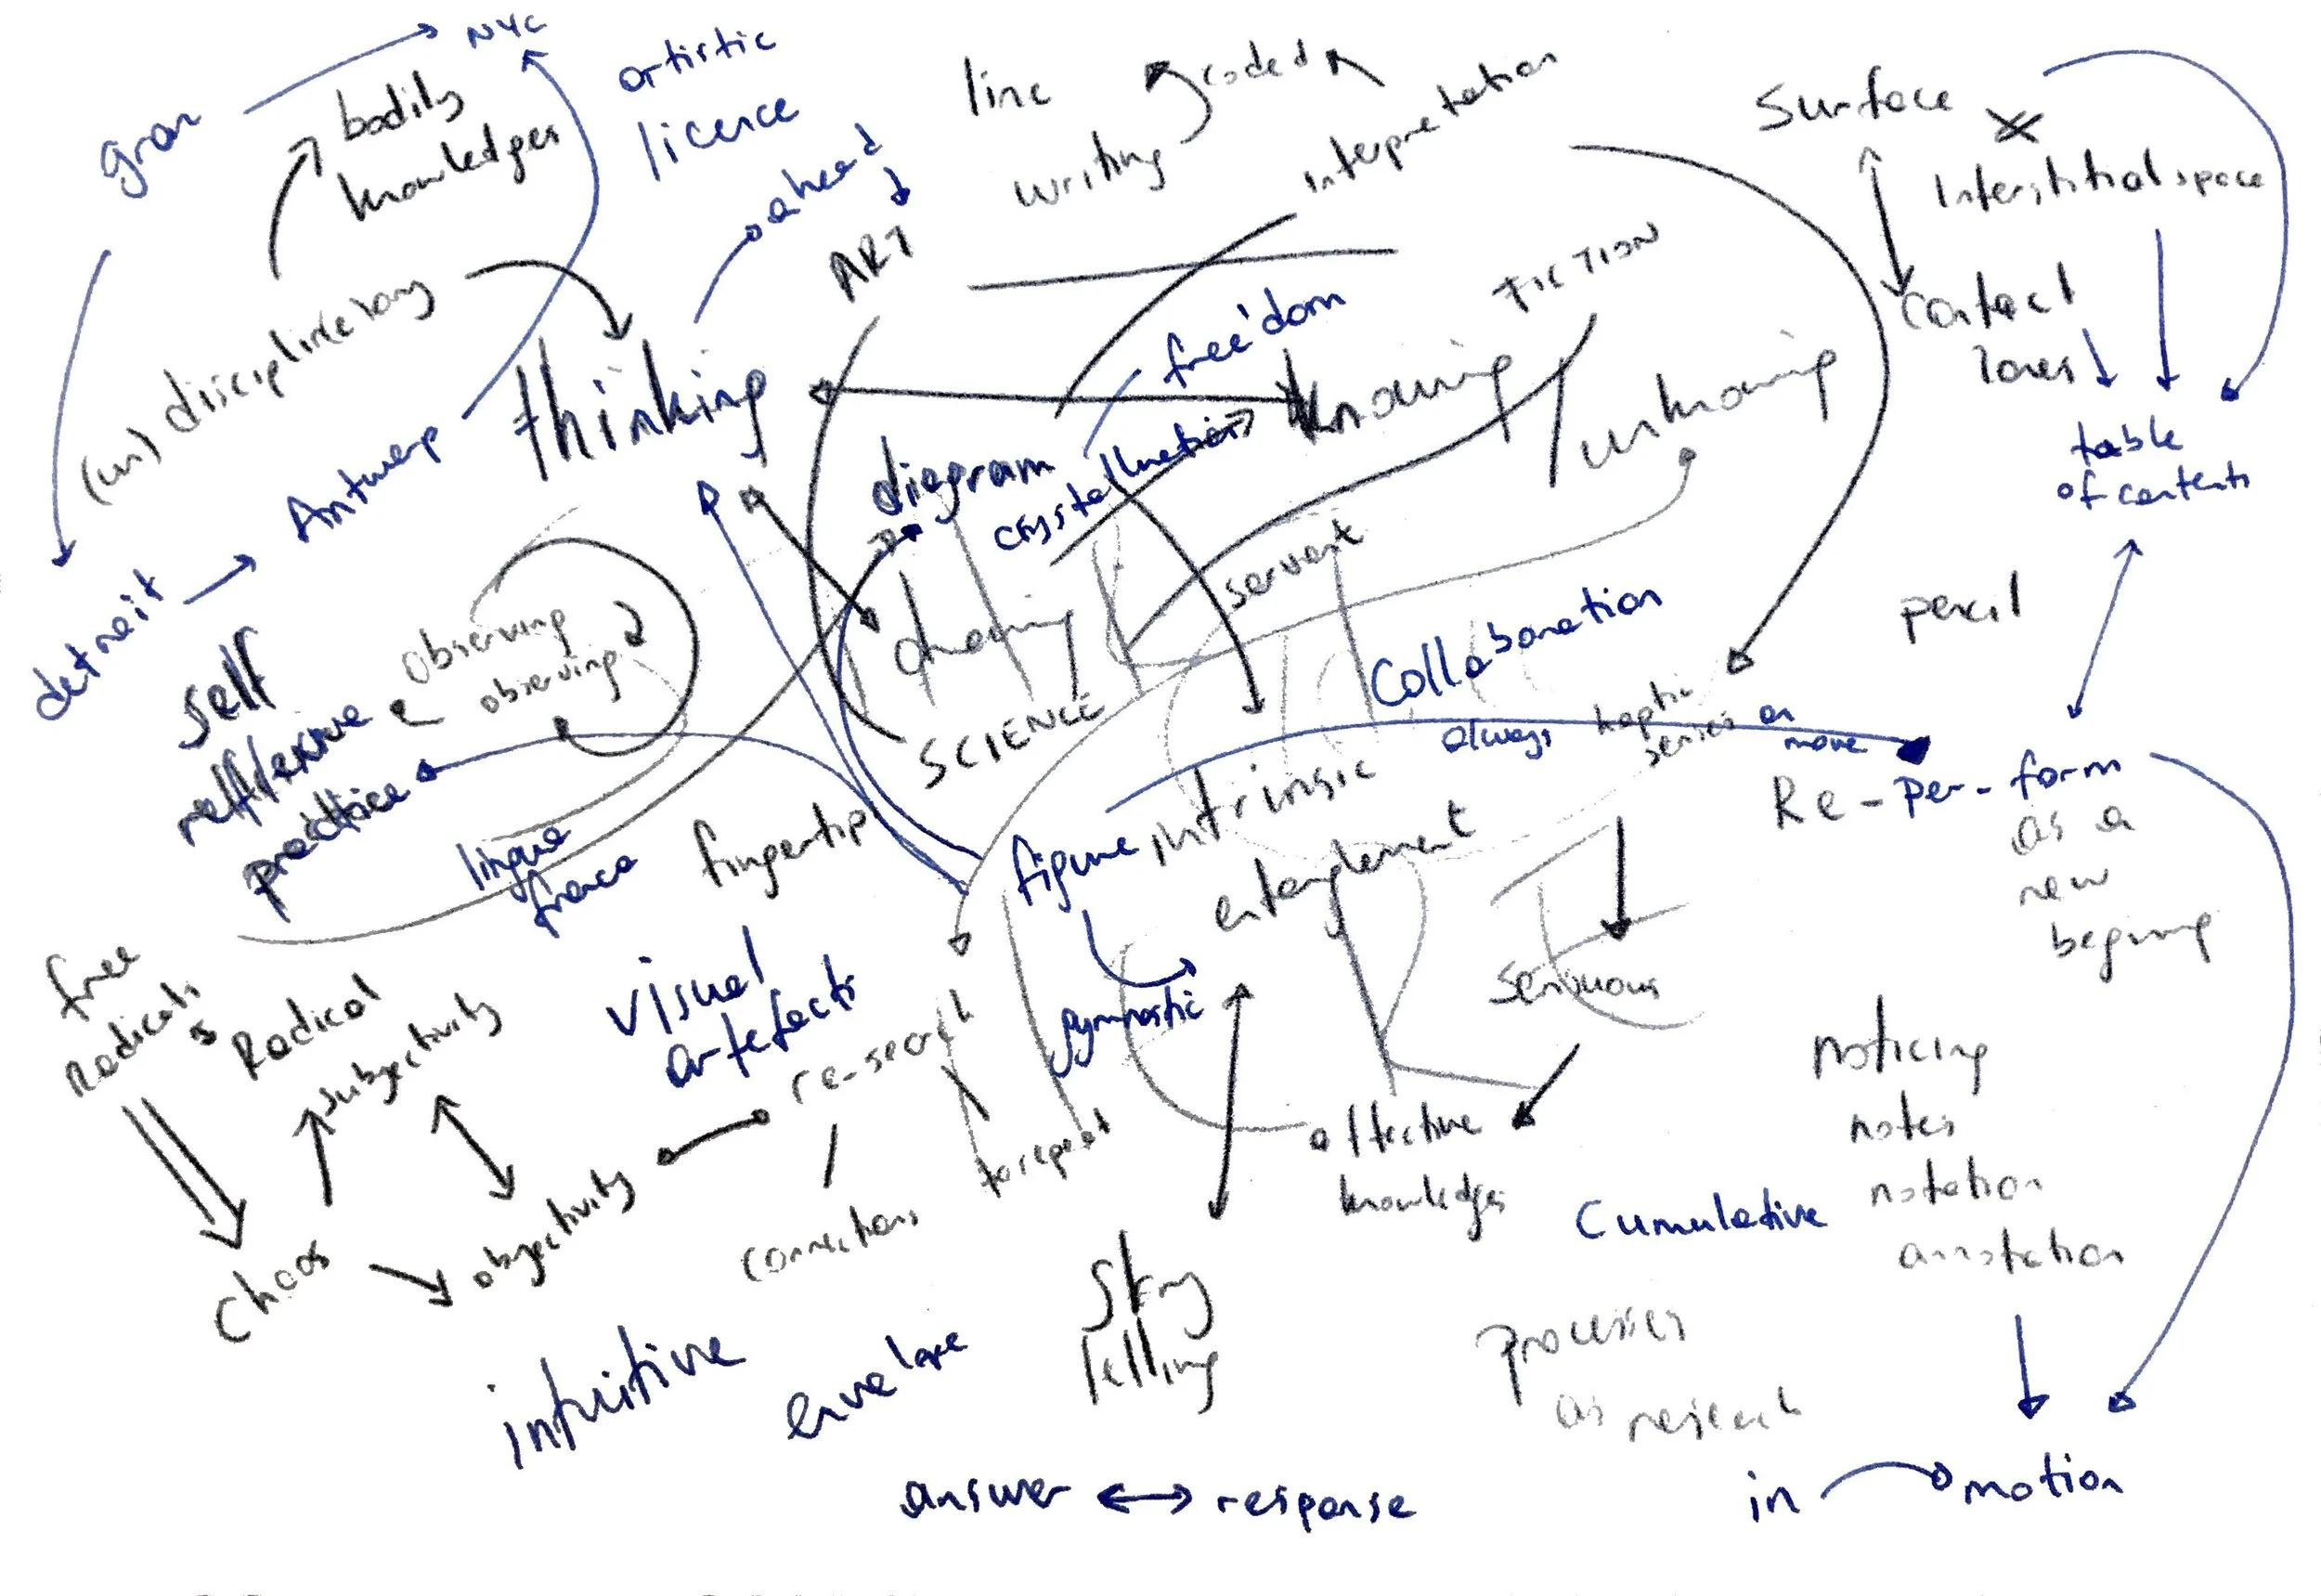 NYC
artistic
licence
gran
bodily
knowledges
ahead
line
coded
writing
interpretation
surface
Interstitial space
ART
FICTION
contact
zones
(un) disciplinary
thinking
freedom
knowing
unknowing
table
of contents
Antwerp
diagram
detroit
servant
pencil
self
observing
observing
drawing
SCIENCE
Collaboration
always
haptic
series
on
move
practice
lingua
franca
fingertip
figure
intrinsic
entanglement
Re-per-form
as a
new
free
Radicals
Radical
subjectivity
visual
artefacts
re-search
gymnastic
sensuous
noticing
notes
notation
annotation
to repeat
affective
knowledges
Cumulative
Chaos
objectivity
connections
Story
telling
processes
as research
intuitive
envelope
answer ↔ response
in motion